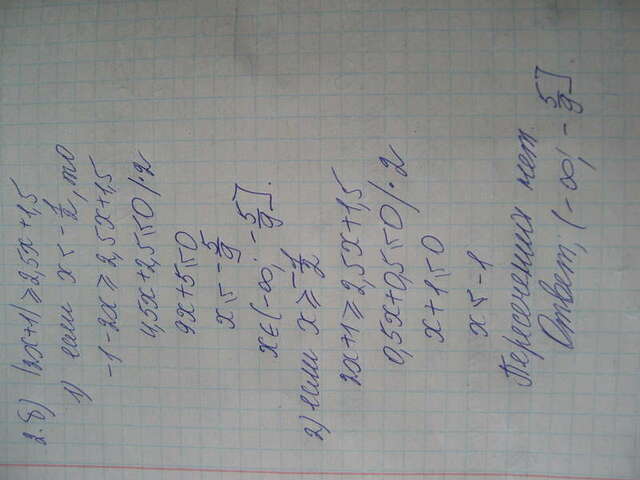 2.б) |2x+1|⩾2,5x+1,5
1) если x<-1/2, то
-1-2x⩾2,5x+1,5
4,5x+2,5⩽0 |·2
9x+5⩽0
x⩽-5/9
x∈(-∞; -5/9].
2) если x⩾-1/2
2x+1⩾2,5x+1,5
0,5x+0,5⩽0 |·2
x+1⩽0
x⩽-1
Пересечений нет.
Ответ: (-∞; -5/9]